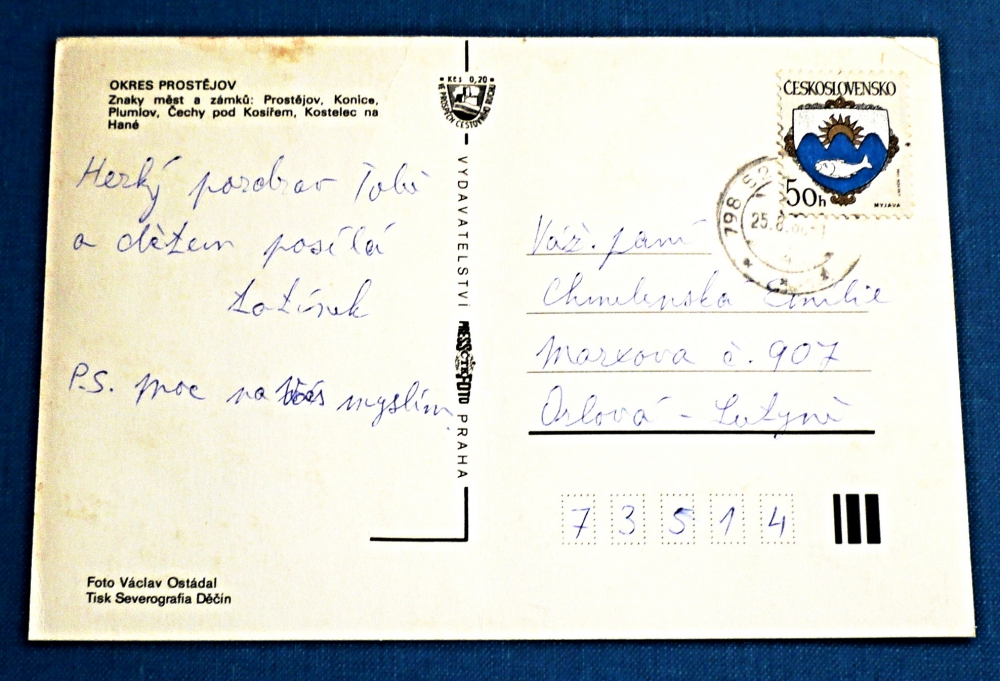 OKRES PROSTĚJOV
Znaky měst a zámků: Prostějov, Konice,
Plumlov, Čechy pod Kosířem, Kostelec na
Hané
Kčs 0,20
VE PROSPĚCH CESTOVNÍHO RUCHU
Hezký pozdrav Tobě
a dětem posílá
P.S. moc na Vás myslím.
VYDAVATELSTVÍ PRESSFOTO PRAHA
ČTK
Foto Václav Ostádal
Tisk Severografia Děčín
ČESKOSLOVENSKO
50h
MYJAVA
798 52
Váž. paní
Chmelenská Emilie
Marxova č. 907
Orlová - Lutyně
7 3 5 1 4